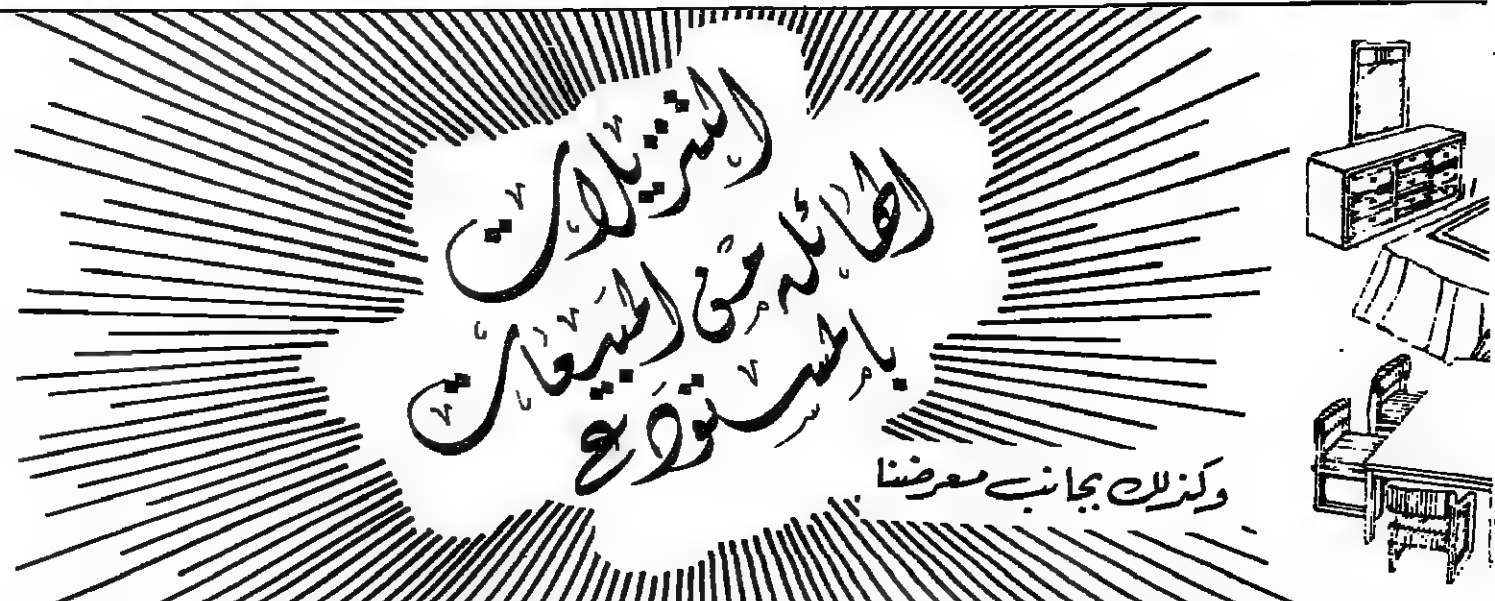 التنزيلات
الهائله من المبيعات
بالمستودع
وكذلك بجانب معرضنا